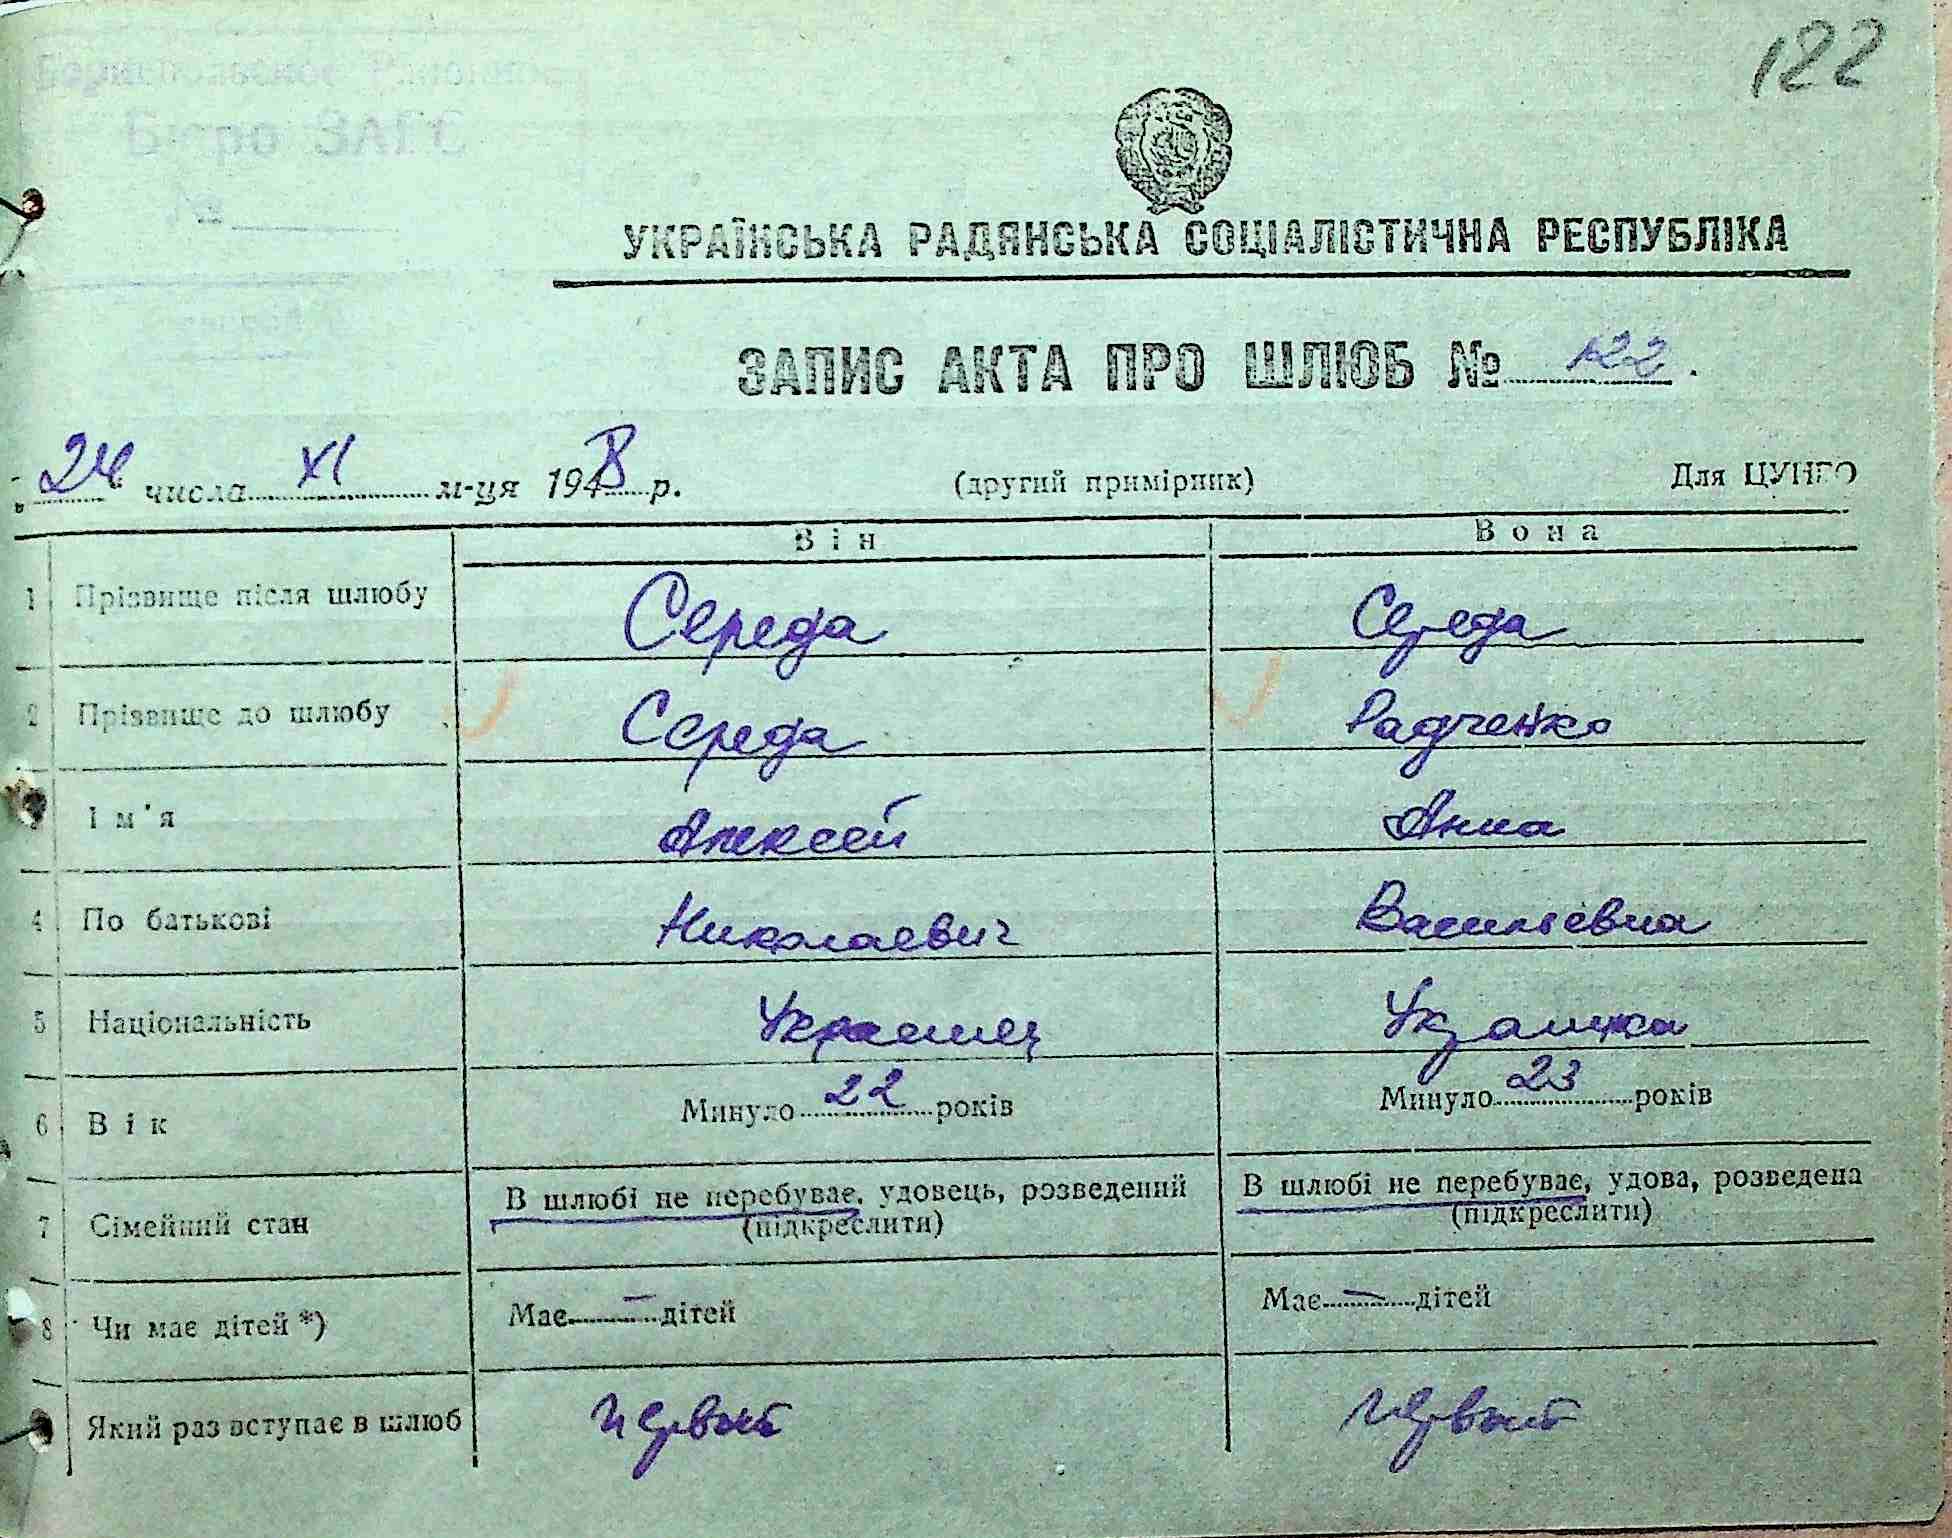 122
Бориспольское Районное
Бюро ЗАГС
№
УКРАЇНСЬКА РАДЯНСЬКА СОЦІАЛІСТИЧНА РЕСПУБЛІКА
ЗАПИС АКТА ПРО ШЛЮБ № 122.
„24“ числа XI м-ця 1948 р. (другий примірник) Для ЦУНГО
Він Вона
1 Прізвище після шлюбу Середа Середа
2 Прізвище до шлюбу Середа Радченко
Ім'я Алексей Анна
4 По батькові Николаевич Васильевна
5 Національність Украинец Украинка
6 Вік Минуло 22 років Минуло 23 років
7 Сімейний стан В шлюбі не перебуває, удовець, розведений В шлюбі не перебуває, удова, розведена
(підкреслити) (підкреслити)
8 Чи має дітей *) Має — дітей Має — дітей
Який раз вступає в шлюб первый первый